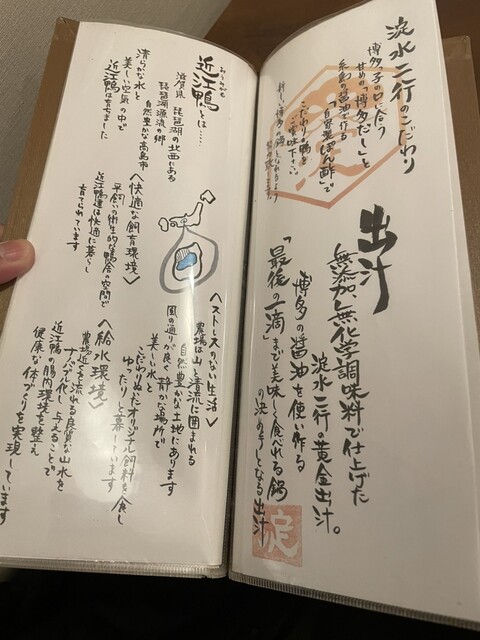 淀水二行のこだわり
博多っ子の口に合う
甘めの「博多だし」と
糸島の醤油で作る
「自家製ぽん酢」で
こだわりの鴨を
ご賞味下さい。
出汁
無添加、無化学調味料で仕上げた
淀水二行の黄金出汁。
博多の醤油を使い作る
「最後の一滴」まで美味しく食べれる鍋
の決め手となる出汁
淀
近江鴨とは…
滋賀県 琵琶湖の北西にある
琵琶湖源流の郷
自然豊かな高島市
清らかな水と
美しい空気の中で
近江鴨は育ちました
〈快適な飼育環境〉
平飼いの衛生的な鴨舎の空間で
近江鴨達は快適に暮らし
育てられています
〈ストレスのない生活〉
農場は山と清流に囲まれる
自然豊かな土地にあります
風の通りが良く静かな場所で
美しい水と
こだわりぬいたオリジナル飼料を食し
ゆったりと暮しています
〈給水環境〉
農場近くを流れる良質な山水を
ナノバブル化し与えることで
近江鴨の腸内環境を整え
健康な体づくりを実現しています